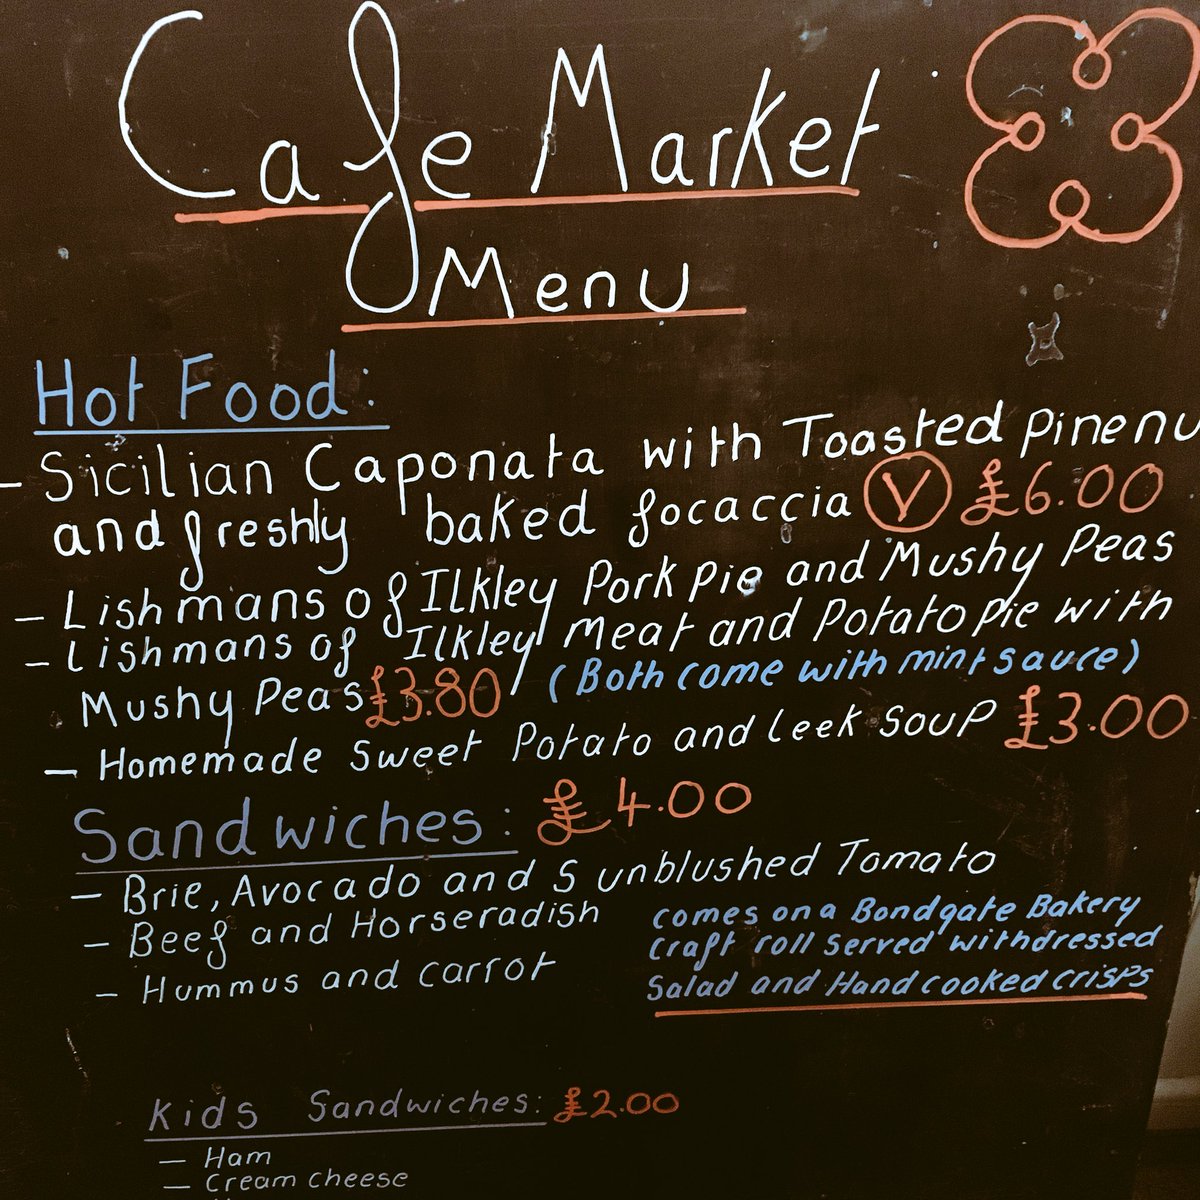 Cafe Market
Menu
Hot Food:
- Sicilian Caponata with Toasted pinenu
and freshly baked focaccia V £6.00
- Lishmans of Ilkley Pork pie and Mushy Peas
- Lishmans of Ilkley Meat and Potato pie with
Mushy Peas £3.80 (Both come with mint sauce)
- Homemade sweet Potato and Leek soup £3.00
Sandwiches: £4.00
- Brie, Avocado and Sunblushed Tomato
- Beef and Horseradish
- Hummus and carrot
comes on a Bondgate Bakery
craft roll served with dressed
Salad and Hand cooked crisps
Kids Sandwiches: £2.00
- Ham
- Cream cheese